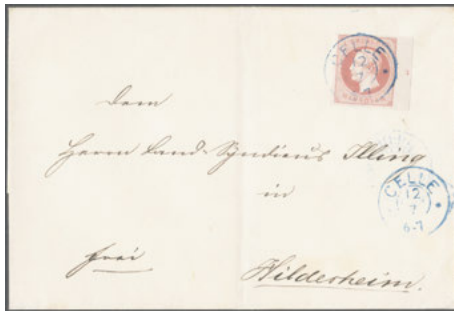 CELLE
12
7
Dem
Herrn Land-Syndicus Illing
in
CELLE
12
7
6-7
frei
Hildesheim.